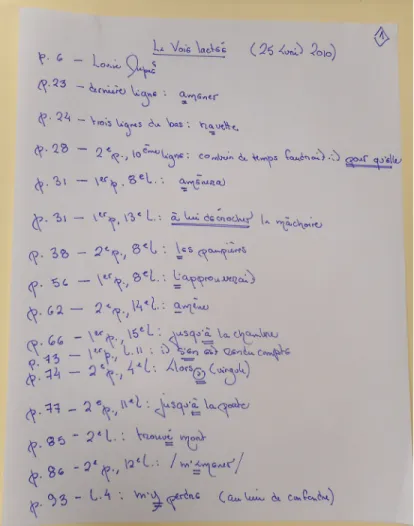 La Voie lactée (25 avril 2010) 1
p. 6 — Louise Dupré
p. 23 — dernière ligne : amener
p. 24 — trois lignes du bas : navette
p. 28 — 2e p., 10ème ligne : combien de temps faudrait-il pour qu'elle
p. 31 — 1er p. 8e l. : amènera
p. 31 — 1er p., 13e l. : à lui décrocher la mâchoire
p. 38 — 2e p., 8e l. : les paupières
p. 56 — 1er p., 8e l. : l'approuverait
p. 62 — 2e p., 14e l. : amène
p. 66 — 1er p., 15e l : jusqu'à la chambre
p. 73 — 1er p., l. 11 : s'en est rendu compte
p. 74 — 2e p., 4e l : Alors, (virgule)
p. 77 — 2e p., 11e l : jusqu'à la porte
p. 85 — 2e l. : trouvé mort
p. 86 — 2e p., 12e l. : /m'emener/
p. 93 — l. 4 : m'y perdre (au lieu de confondre)